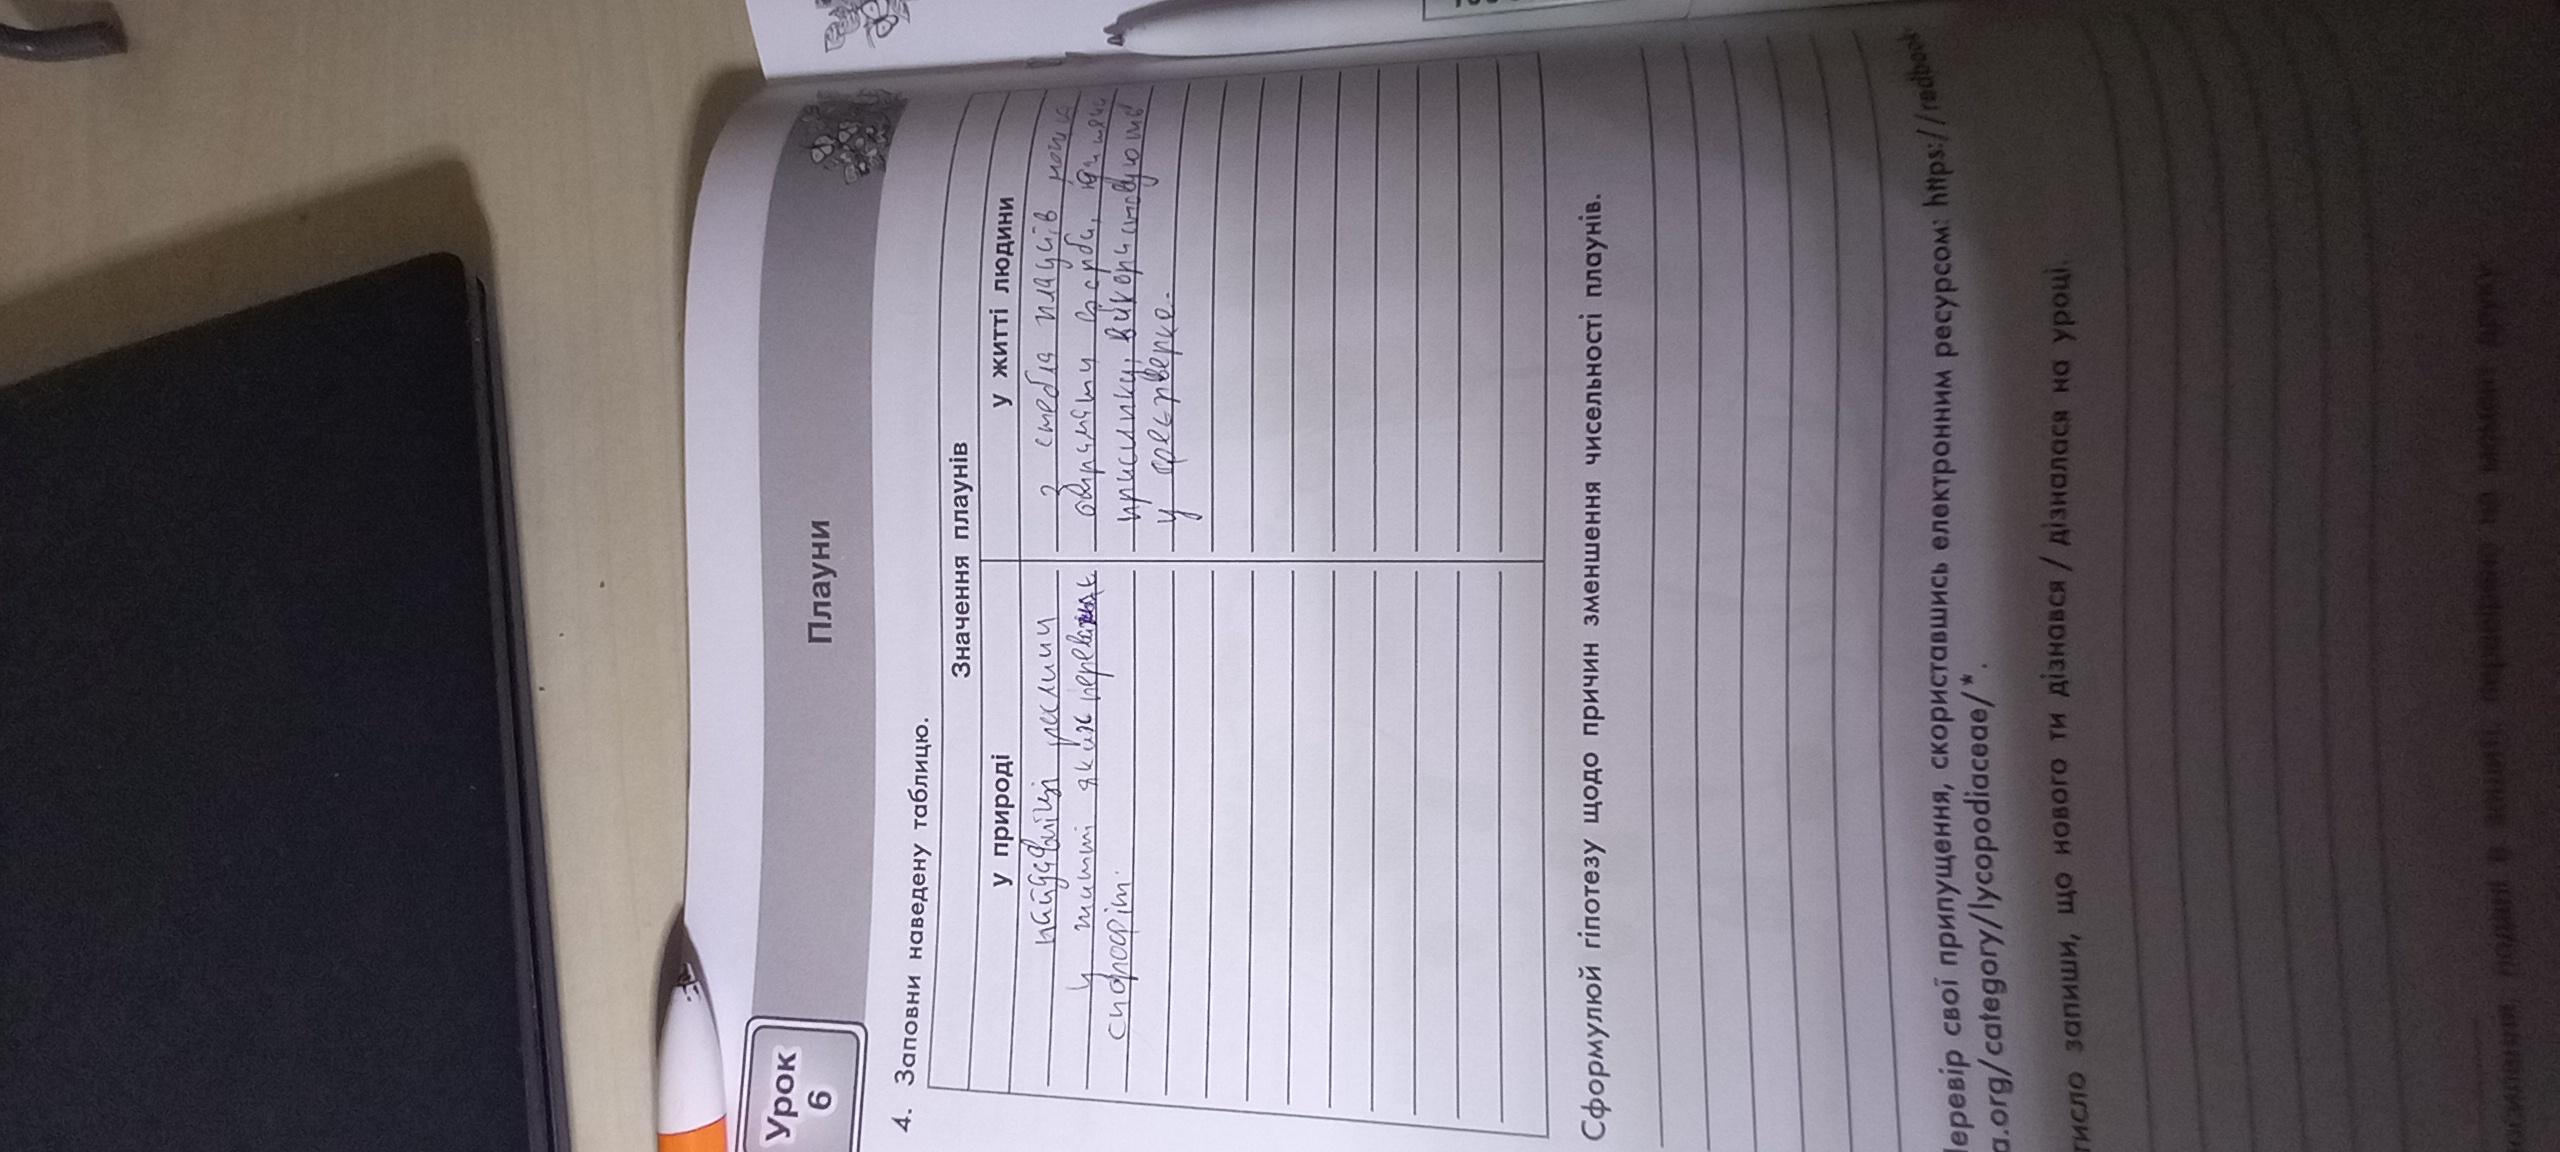 Урок
6
Плауни
4. Заповни наведену таблицю.
Значення плаунів
у природі
у житті людини
найдавніці рослини
у житті яких переважає
спорофіт.
З стебла плаунів можна
отримати фарби,
присипку, використовують
у феєрверке.
Сформулюй гіпотезу щодо причин зменшення чисельності плаунів.
еревір свої припущення, скориставшись електронним ресурсом: https://redbook
a.org/category/lycopodiaceae/*.
тисло запиши, що нового ти дізнався / дізналася на уроці.